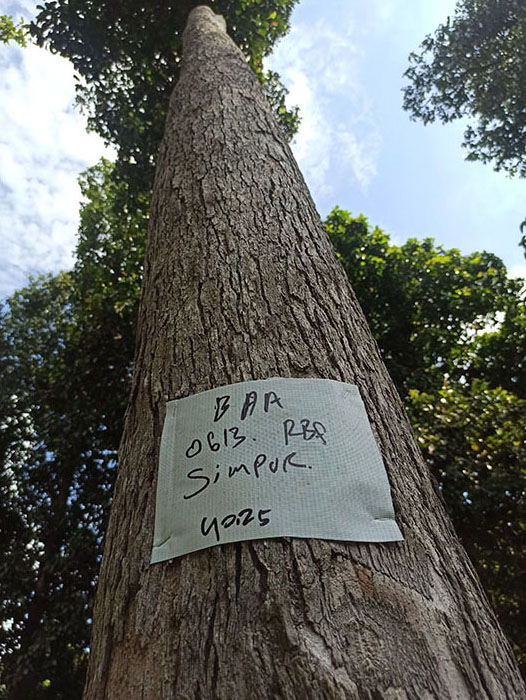 BAA
0613. RBP
Simpur.
40.25